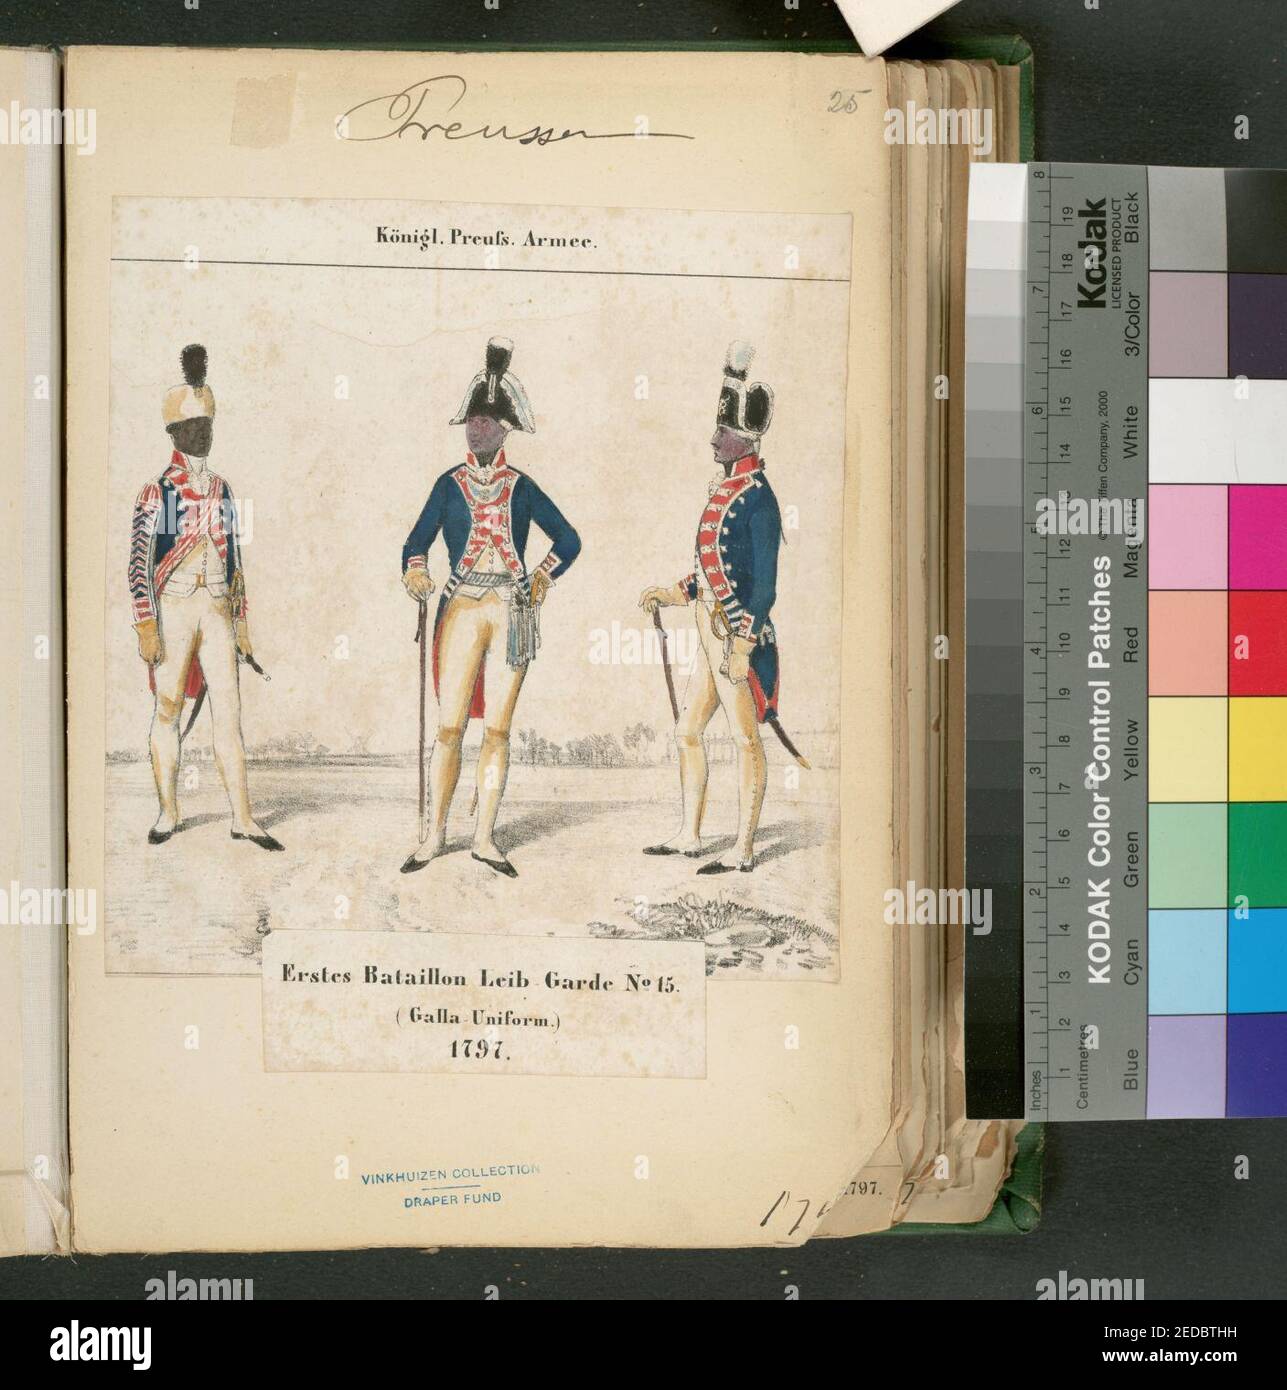 Preussen
25
Königl. Preuſs. Armee.
Erstes Bataillon Leib-Garde No 15.
(Galla-Uniform.)
1797.
VINKHUIZEN COLLECTION
DRAPER FUND
1797.
Kodak
LICENSED PRODUCT
KODAK Color Control Patches
Black
3/Color
White
Magenta
Red
Yellow
Green
Cyan
Blue
Inches
1 2 3 4 5 6 7 8
Centimetres
1 2 3 4 5 6 7 8 9 10 11 12 13 14 15 16 17 18 19
alamy
a
alamy
Image ID: 2EDBTHH
www.alamy.com